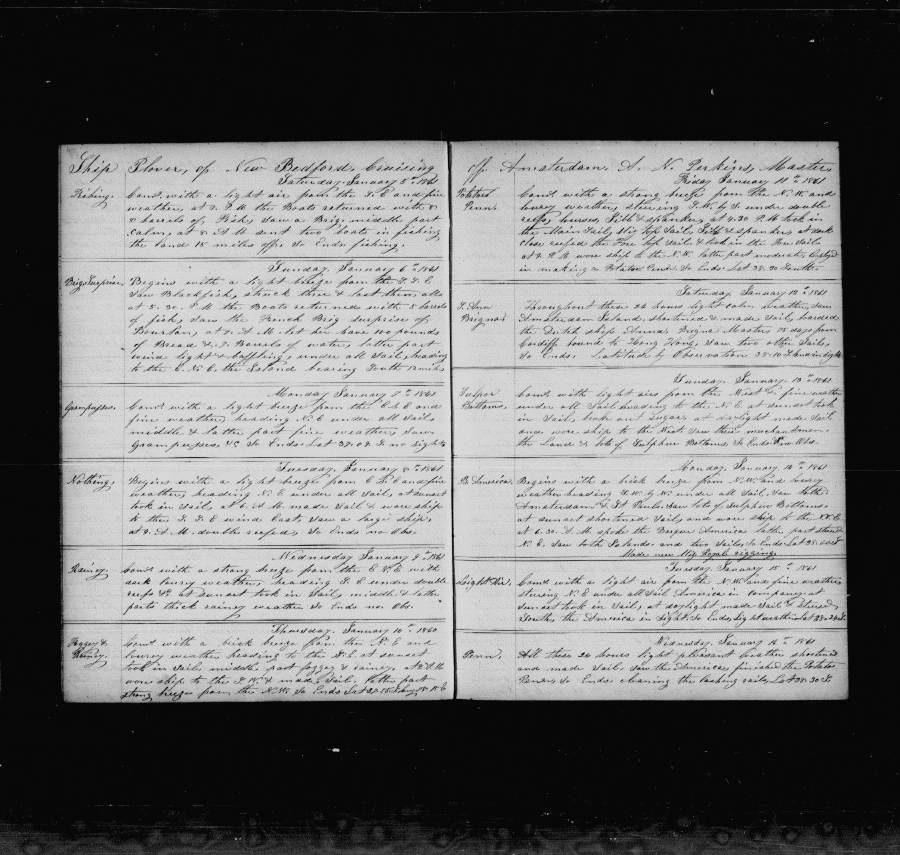 Ship Plover, of New Bedford, Cruising
Saturday, January 5th 1861
Fishing. Comd. with a light air from the S. E. and fine
weather, at 2. P. M the Boats returned with 8
barrels of, Fish, Saw a Brig. middle part
Calm, at 8. A M sent two boats in fishing
the land 15 miles off, So Ends fishing.
Sunday, January 6th 1861
Brig Surprise. Begins with a light breeze from the S. S. E
Saw Blackfish, struck three & lost them, also
at 5. 30. P. M the Boats returned with 5 barrels
of fish, Saw the French Brig Surprise of
Bourbon, at 7. A. M. let her have 100 pounds
of Bread & 2. Barrels of water, latter part
wind light & baffling, under all Sail, heading
to the E. N. E. the Island bearing South 12 miles
Monday January 7th 1861
Grampusses. Comd. with a light breeze from the E. and
fine weather, heading N. E under all Sail,
middle & latter part fine weather, Saw
Grampusses, &c So Ends Lat 37. 09. S. no Sights
Tuesday, January 8th 1861
Nothing. Begins with a light breeze from E. and fine
weather, heading N. E under all Sail, at sunset
took in Sail, at 6. A. M. made Sail & wore ship
to the S. S. E wind East, Saw a large ship,
at 9. A-M. double reefed, So Ends no Obs.
Wednesday January 9th 1861
Rainey. Comd. with a strong breeze from the E. N. E with
dark lowrey weather, heading S. E under double
reefs &c at sunset took in Sail, middle & latter
parts thick rainey weather So Ends no. Obs.
Thursday, January 10th 1860
Foggy & Rainey. Comd. with a brisk breeze from the N. E and
lowrey weather heading to the S. E. at sunset
took in Sail, middle part foggy & rainey. At 8. A. M
wore ship to the & made Sail. latter part
strong breeze from the N. W. So Ends Lat
off Amsterdam. A. N. Perkins, Master
Friday January 11th 1861
Potatoe Penn. Comd. with a strong breeze from the N. W. and
lowrey weather, steering S. W. by S. under double
reefs, courses, Jibb & spanker, at 4. 30 P. M took in
the Main Sail, Miz top Sail, Jibb & spanker, at dark
close reefed the Fore top Sail & took in the Fore Sail
at P. M wore ship to the N. W. latter part moderate, Employed
in making a Potatoe Penn. So Ends Lat 38. 30 South.
Saturday, January 12th 1861
Throughout these 24 hours light calm weather, saw
Amsterdam Island, shortened & made Sail, boarded
the Dutch ship Anna Master, 75 days from
Cardiff bound to Hong Kong, saw two other Sails,
So Ends. Latitude by Observation 38. 10 S
Sunday, January 13th 1861
Sulpor Bottoms. Comd. with light airs from the West & fine weather
under all Sail heading to the N. E at sunset took
in Sail, at daylight made Sail
and wore ship to the West. Saw
the Land & lots of Sulphur Bottoms, So Ends no Obs.
Monday, January 14th 1861
B. America. Begins with a brisk breeze from N. W. and lowrey
weather heading S. W. by W. under all Sail. Saw both
Amsterdam, & St Pauls. Saw lots of Sulphur Bottoms.
at sunset shortened Sail, and wore ship to the N. E
at 6. 30. A. M spoke the Barque America latter part steered
N. E. Saw both Islands and two Sails, So Ends Lat 38.
Made new Miz Royal rigging.
Tuesday, January 15th 1861
Light Air. Comd. with a light air from the N. W. and fine weather
steering N. E under all Sail America in company at
sunset took in Sail, at daylight made Sail & steered
South, the America in Sight. So Ends light weather Lat 38.
Wednesday, January 16th 1861
Penn. All these 24 hours light pleasant weather shortened
and made Sail. Saw the America, finished the Potatoe
Penns So Ends cleaning the Lat 38. 30 S.